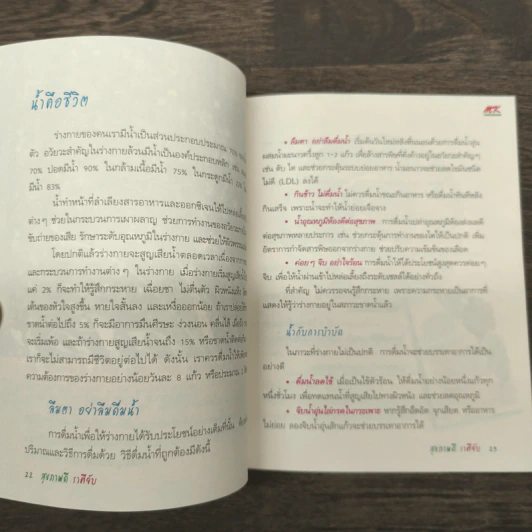 น้ำคือชีวิต
ร่างกายของคนเรามีน้ำเป็นส่วนประกอบประมาณ
ตัว อวัยวะสำคัญในร่างกายล้วนมีน้ำเป็นองค์ประกอบหลัก
70% ปอดมีน้ำ 90% ในกล้ามเนื้อมีน้ำ 75% ในกระดูกมีน้ำ
มีน้ำ 83%
น้ำทำหน้าที่ลำเลียงสารอาหารและออกซิเจนให้ไป
ต่างๆ ช่วยในกระบวนการเผาผลาญ ช่วยการทำงานของอวัยวะ
ขับถ่ายของเสีย รักษาระดับอุณหภูมิในร่างกาย และช่วยให้ผิวพรรณ
โดยปกติแล้วร่างกายจะสูญเสียน้ำตลอดเวลาเนื่องจาก
และกระบวนการทำงานต่างๆ ในร่างกาย เมื่อร่างกายสูญเสียน้ำ
แค่ 2% ก็จะทำให้รู้สึกกระหาย เฉื่อยชา ไม่ตื่นตัว ผิวหนังแห้ง
เต้นของหัวใจสูงขึ้น หายใจสั้นลง และเหงื่อออกน้อย ถ้าเราปล่อยให้
ขาดน้ำต่อไปถึง 5% ก็จะมีอาการมึนศีรษะ ง่วงนอน คลื่นไส้
จะเริ่มเพ้อ และถ้าร่างกายสูญเสียน้ำจนถึง 15% หรือขาดน้ำติดต่อ
เราก็จะไม่สามารถมีชีวิตอยู่ต่อไปได้ ดังนั้น เราควรดื่มน้ำให้
ความต้องการของร่างกายอย่างน้อยวันละ 8 แก้ว หรือประมาณ 2
ลืมตา อย่าลืมดื่มน้ำ
การดื่มน้ำเพื่อให้ร่างกายได้รับประโยชน์อย่างเต็มที่นั้น
ปริมาณและวิธีการดื่มด้วย วิธีดื่มน้ำที่ถูกต้องมีดังนี้
22 สุขภาพดี ราศีจับ
MK
• ลืมตา อย่าลืมดื่มน้ำ เริ่มต้นวันใหม่หลังตื่นนอนด้วยการดื่มน้ำอุ่น
ผสมน้ำมะนาวครึ่งลูก 1-2 แก้ว เพื่อล้างสารพิษที่คั่งค้างอยู่ในอวัยวะสำคัญๆ
เช่น ตับ ไต และช่วยกระตุ้นระบบย่อยอาหาร น้ำมะนาวจะช่วยลดไขมันชนิด
ไม่ดี (LDL) ลงได้
• กินข้าว ไม่ดื่มน้ำ ไม่ควรดื่มน้ำขณะกินอาหาร หรือดื่มน้ำทันทีหลัง
กินเสร็จ เพราะน้ำจะทำให้น้ำย่อยเจือจาง
• น้ำอุณหภูมิห้องดีต่อสุขภาพ การดื่มน้ำเปล่าอุณหภูมิห้องส่งผลดี
ต่อสุขภาพหลายประการ เช่น ช่วยกระตุ้นการทำงานของไตให้เป็นปกติ เพิ่ม
อัตราการกำจัดสารพิษออกจากร่างกาย ช่วยปรับความเข้มข้นของเลือด
• ค่อยๆ จิบ อย่าใจร้อน การดื่มน้ำให้ได้ประโยชน์สูงสุดควรค่อยๆ
จิบ เพื่อให้น้ำผ่านเข้าไปหล่อเลี้ยงถึงระดับเซลล์ได้อย่างทั่วถึง
ที่สำคัญ ไม่ควรรอจนรู้สึกกระหาย เพราะความกระหายเป็นอาการที่
แสดงให้รู้ว่าร่างกายอยู่ในสภาวะขาดน้ำแล้ว
น้ำกับการบำบัด
ในภาวะที่ร่างกายไม่เป็นปกติ การดื่มน้ำจะช่วยบรรเทาอาการได้เป็น
อย่างดี
• ดื่มน้ำลดไข้ เมื่อเป็นไข้ตัวร้อน ให้ดื่มน้ำอย่างน้อยหนึ่งแก้วทุก
หนึ่งชั่วโมง เพื่อทดแทนน้ำที่สูญเสียไปทางผิวหนัง และช่วยลดอุณหภูมิ
• จิบน้ำอุ่นไล่กรดในกระเพาะ หากรู้สึกอึดอัด จุกเสียด หรืออาหาร
ไม่ย่อย ลองจิบน้ำอุ่นสักแก้วจะช่วยบรรเทาอาการได้
สุขภาพดี ราศีจับ 23